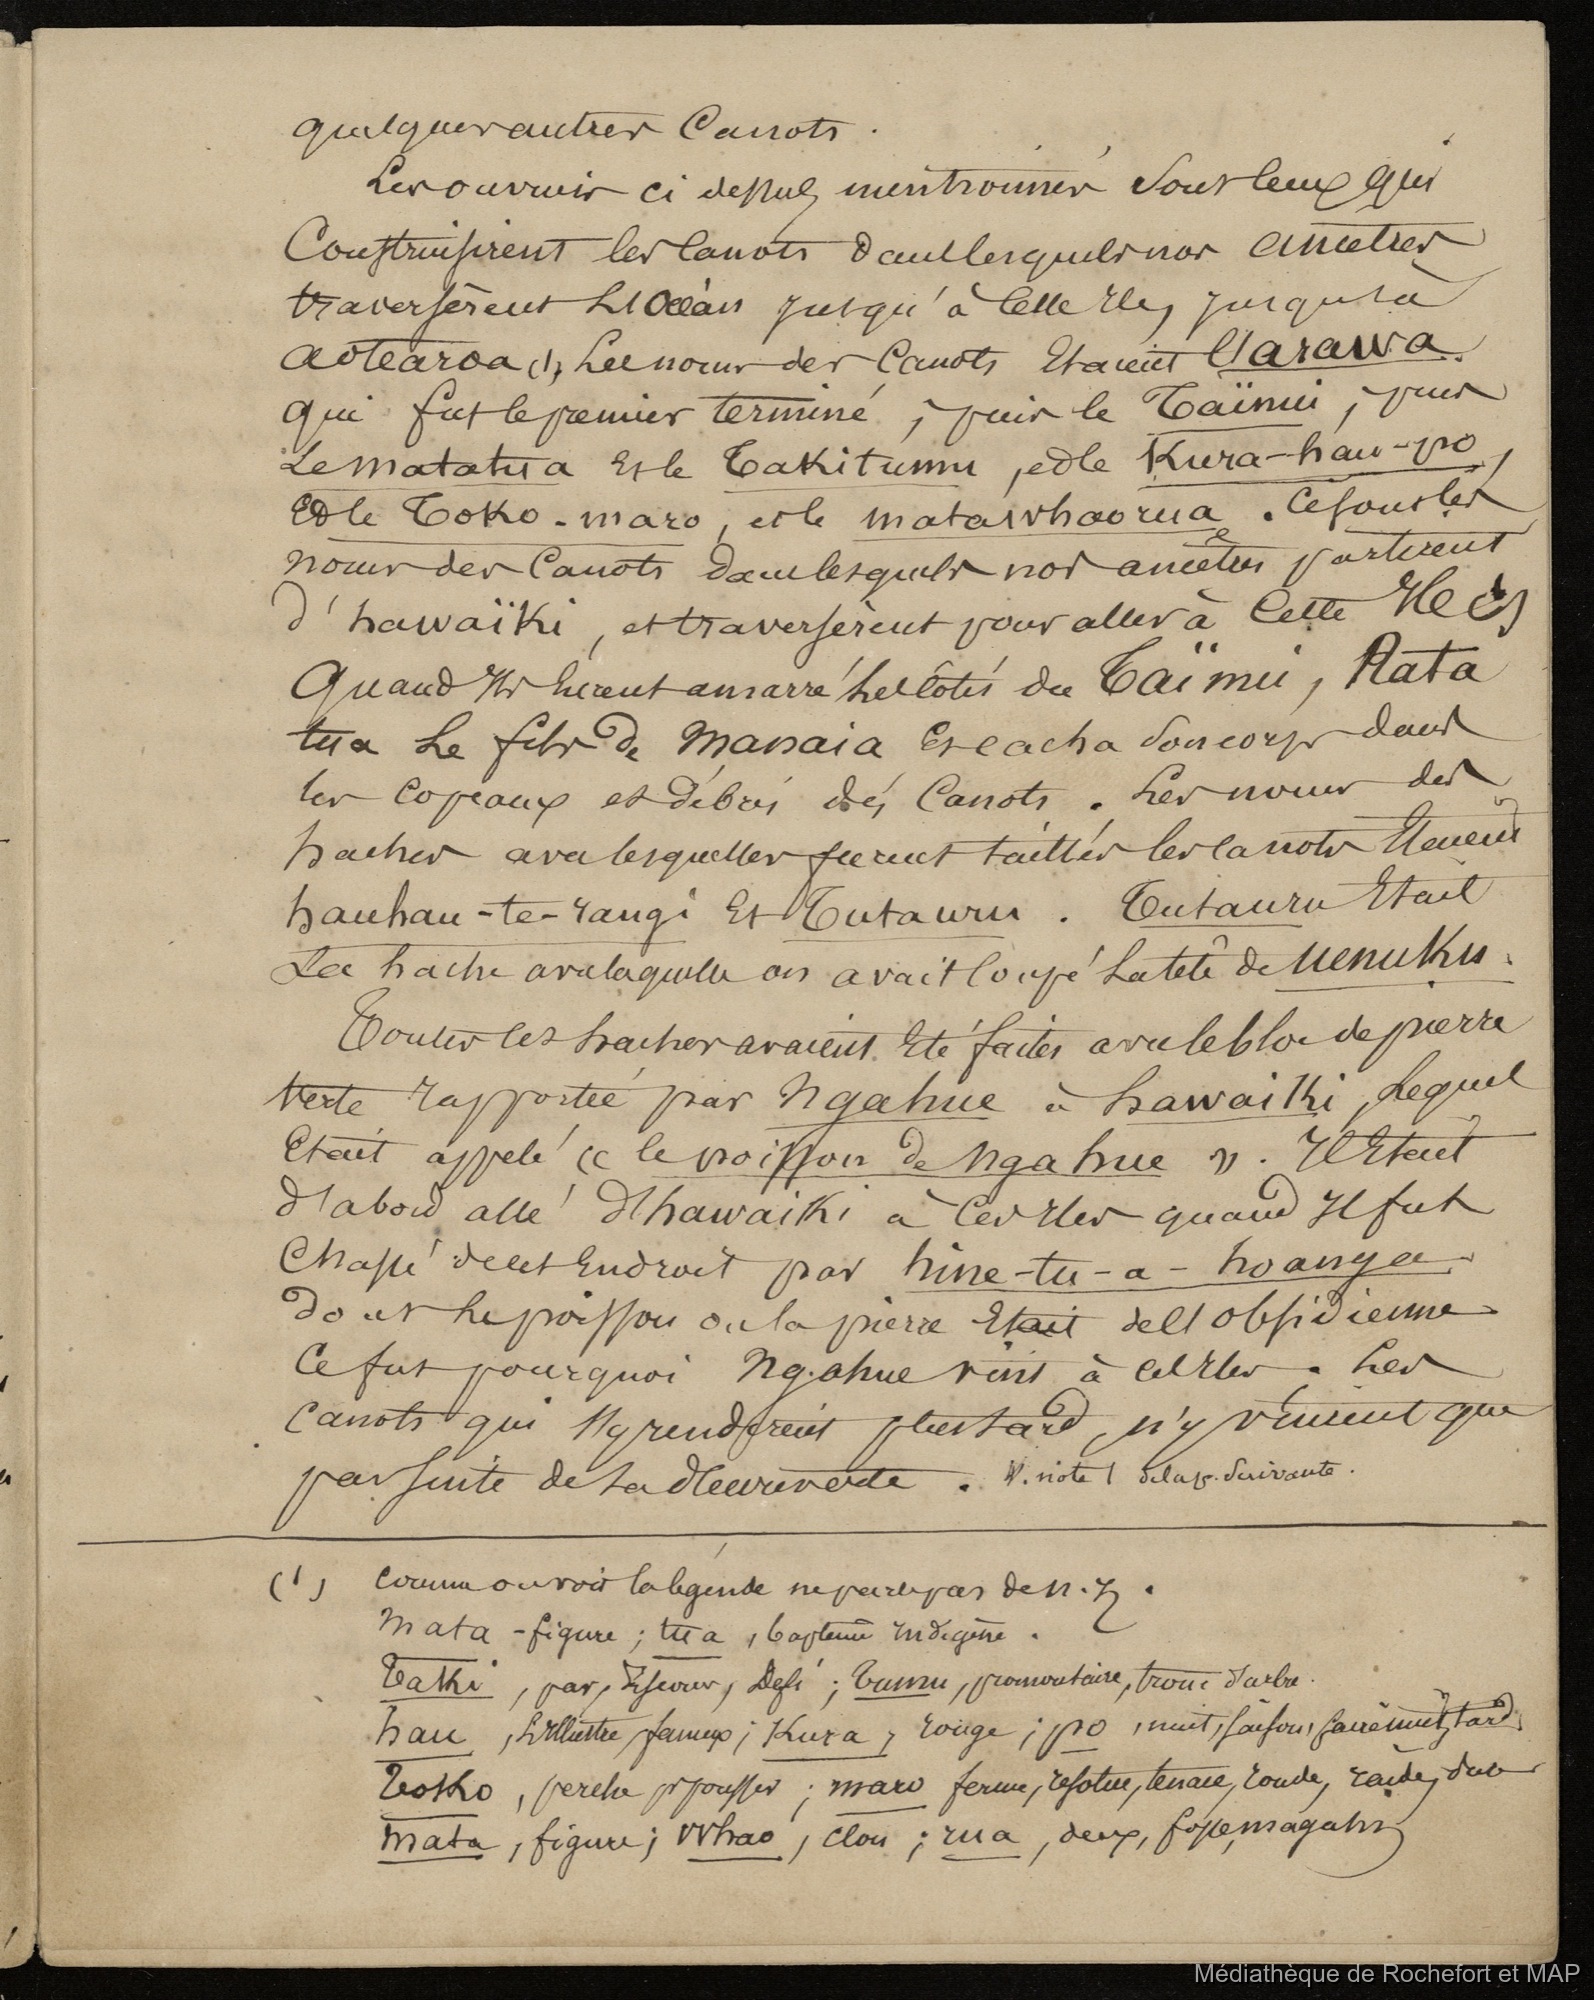 quelques autres Canots.
Les ouvriers ci dessus mentionnés sont ceux qui
Construisirent les Canots dans lesquels nos ancêtres
traversèrent L'Océan jusqu'à Cette Ile, jusqu'à
aotearoa (1). Les noms des Canots Etaient l'arawa
qui fut le premier terminé, puis le Taïnui, puis
Le matatua Et le Takitumu, et le Kura-hau-po,
Et le Toko-maro, et le matawhaorua. Ce sont les
noms des Canots dans lesquels nos ancêtres partirent
d'hawaïki, et traversèrent pour aller à Cette Ile
Quand Ils Eurent amarré les Côtés du Taïnui, Rata
tua Le fils de Manaia Et cacha son corps dans
les copeaux et débris des Canots. Les noms des
haches avec lesquelles furent taillés les canots Etaient
hauhau-te-rangi Et Tutauru. Tutauru Etait
La hache avec laquelle on avait Coupé La tête de Uenuku.
Toutes les haches avaient Eté faites avec le bloc de pierre
Verte rapportée par Ngahue à hawaiki, Lequel
Etait appelé « le poisson de Ngahue ». Il Etait
d'abord allé d'hawaiki à Ces Iles quand Il fut
Chassé de cet Endroit par hine-tu-a-hoanga
dont Le poisson ou la pierre Etait de l'obsidienne
Ce fut pourquoi Ngahue vint à ces Iles. Les
Canots qui s'y rendirent plus tard, n'y vinrent que
par suite de sa découverte. V. note 1 de la p. suivante.
(1) comme on voit la légende ne parle pas de N. Z.
Mata - figure; tua, baptême Indigène.
Taki, par, Défi; Tumu, promontoire, tronc d'arbre.
hau, Illustre, fameux; Kura, rouge; po, nuit, saison, faire nuit, tard,
Toko, perche pr pousser; maro ferme, résolue, tenace, raide, dur
mata, figure; whao, clou; rua, deux, fosse, magasin
Médiathèque de Rochefort et MAP